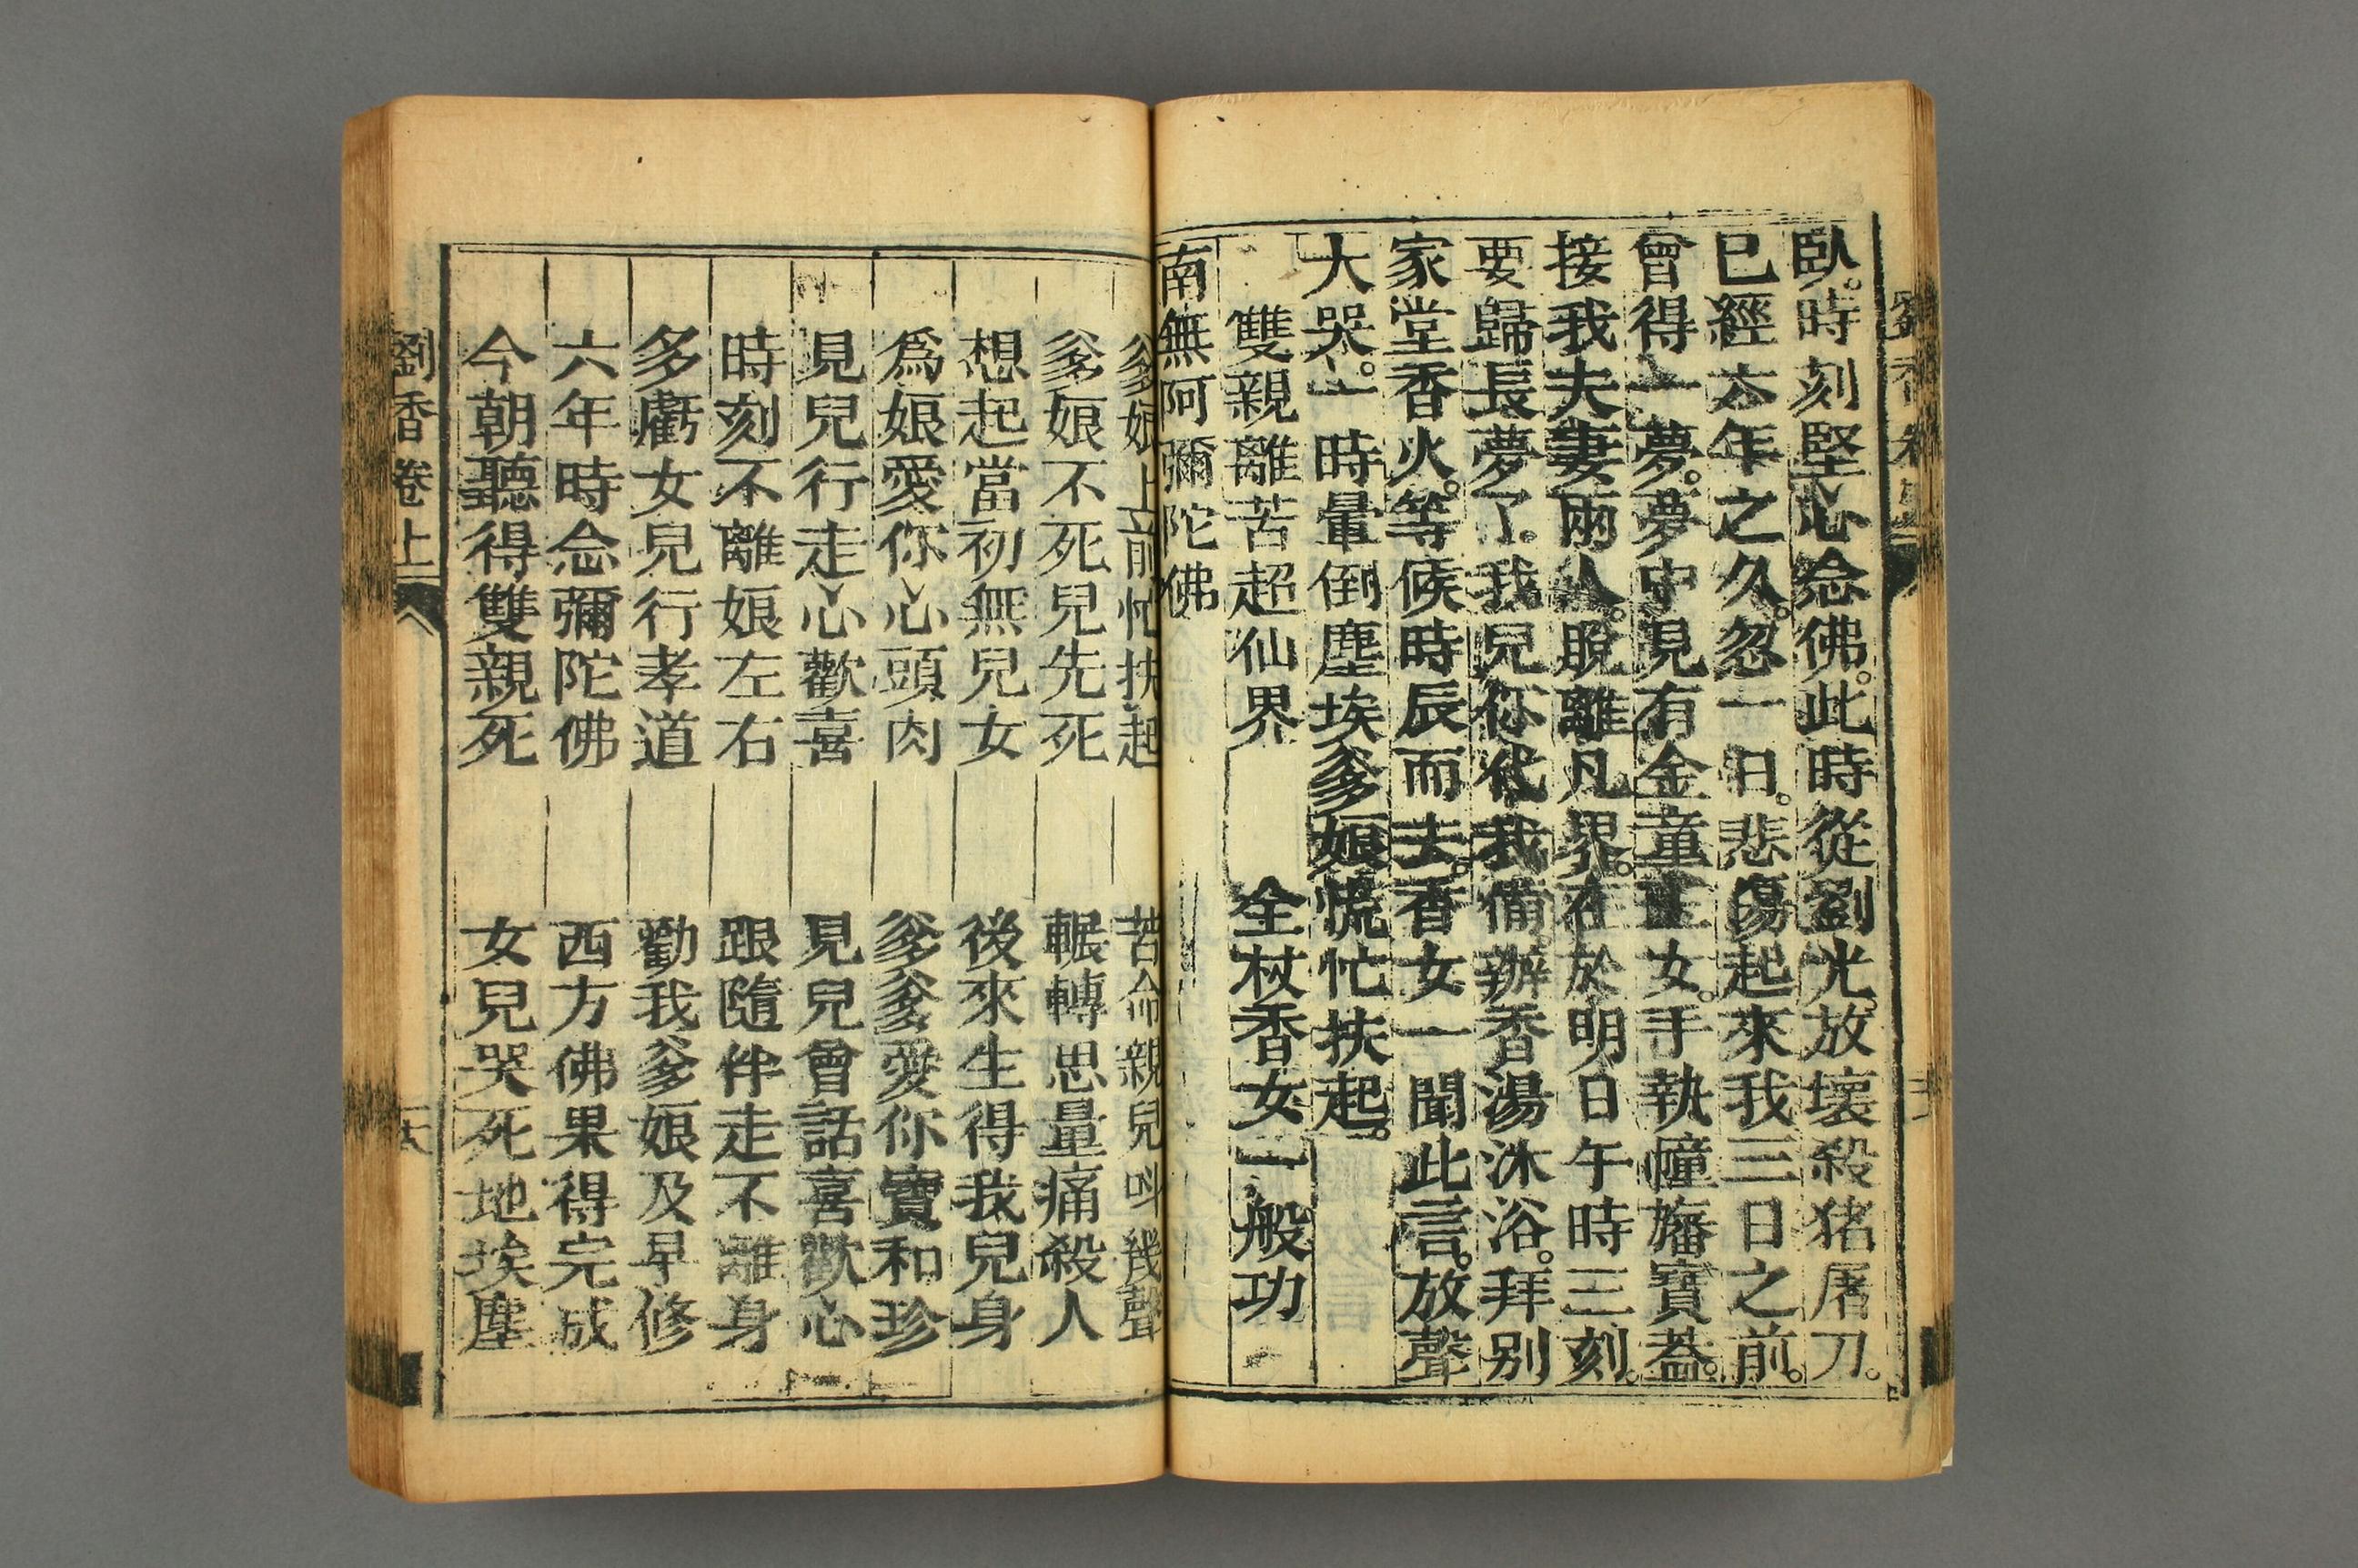 臥。時刻堅心念佛。此時從劉光。放壞殺猪屠刀。
已經六年之久。忽一日。悲傷起來我三日之前。
曾得一夢。夢中見有金童玉女。手執幢旛寶葢。
接我夫妻兩人。脫離凡界。在於明日午時三刻。
要歸長夢了。我兒你代我備辦香湯沐浴。拜别
家堂香火。等候時辰而去。香女一聞此言。放聲
大哭。一時暈倒塵埃爹娘慌忙扶起。
雙親離苦超仙界 全杖香女一般功
南無阿彌陀佛
爹娘上前忙扶起 苦命親兒叫幾聲
爹娘不死兒先死 輾轉思量痛殺人
想起當初無兒女 後來生得我兒身
爲娘愛你心頭肉 爹爹愛你寶和珍
見兒行走心歡喜 見兒曾話喜歡心
時刻不離娘左右 跟隨伴走不離身
多虧女兒行孝道 勸我爹娘及早修
六年時念彌陀佛 西方佛果得完成
今朝聽得雙親死 女兒哭死地埃塵
劉香卷上 六